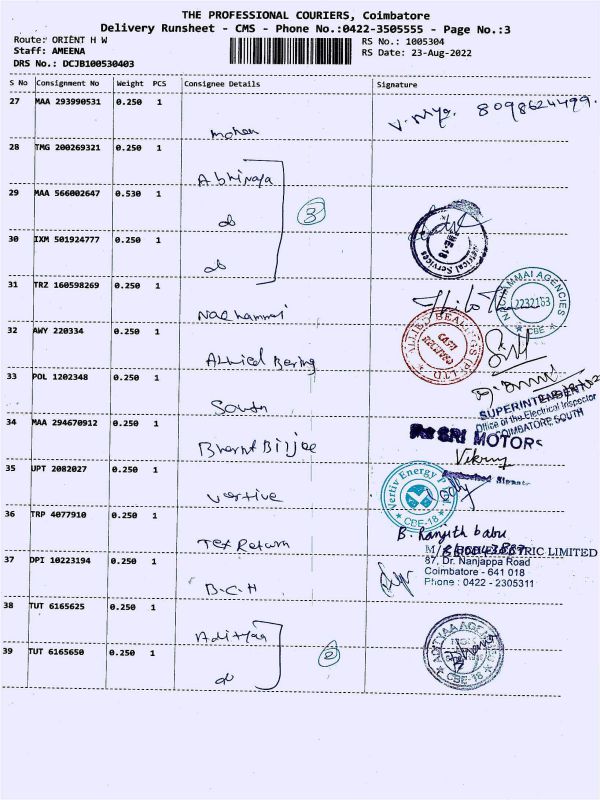 THE PROFESSIONAL COURIERS, Coimbatore
Delivery Runsheet - CMS - Phone No.:0422-3505555 - Page No.:3
Route: ORIENT H W
RS No.: 1005304
Staff: AMEENA
RS Date: 23-Aug-2022
DRS No.: DCJB100530403
S No Consignment No Weight PCS Consignee Details Signature
27 MAA 293990531 0.250 1
Mohan 8098624499.
28 TMG 200269321 0.250 1
Abhinaya
29 MAA 566002647 0.530 1
do 3
30 IXM 501924777 0.250 1
do
CBE-18
31 TRZ 160598269 0.250 1
NAGAMMAI AGENCIES
2232163
CBE
32 AWY 220334 0.250 1
Allied Bering
ALLIED BEARINGS (P) LTD
33 POL 1202348 0.250 1
South
SUPERINTENDENT
Office of the Electrical Inspector
COIMBATORE SOUTH
34 MAA 294670912 0.250 1
Bharat Bijlee
SRI MOTORS
35 UPT 2082027 0.250 1
Vertive
Vertiv Energy P Ltd.
CBE-18
36 TRP 4077910 0.250 1
Tex Return
B. Ranjith babu
37 DPI 10223194 0.250 1
B.C.H
ELECTRIC LIMITED
87, Dr. Nanjappa Road
Coimbatore - 641 018
Phone : 0422 - 2305311
38 TUT 6165625 0.250 1
Adityaa
39 TUT 6165650 0.250 1
do 2
ADITYAA AGENCIES
CBE-18